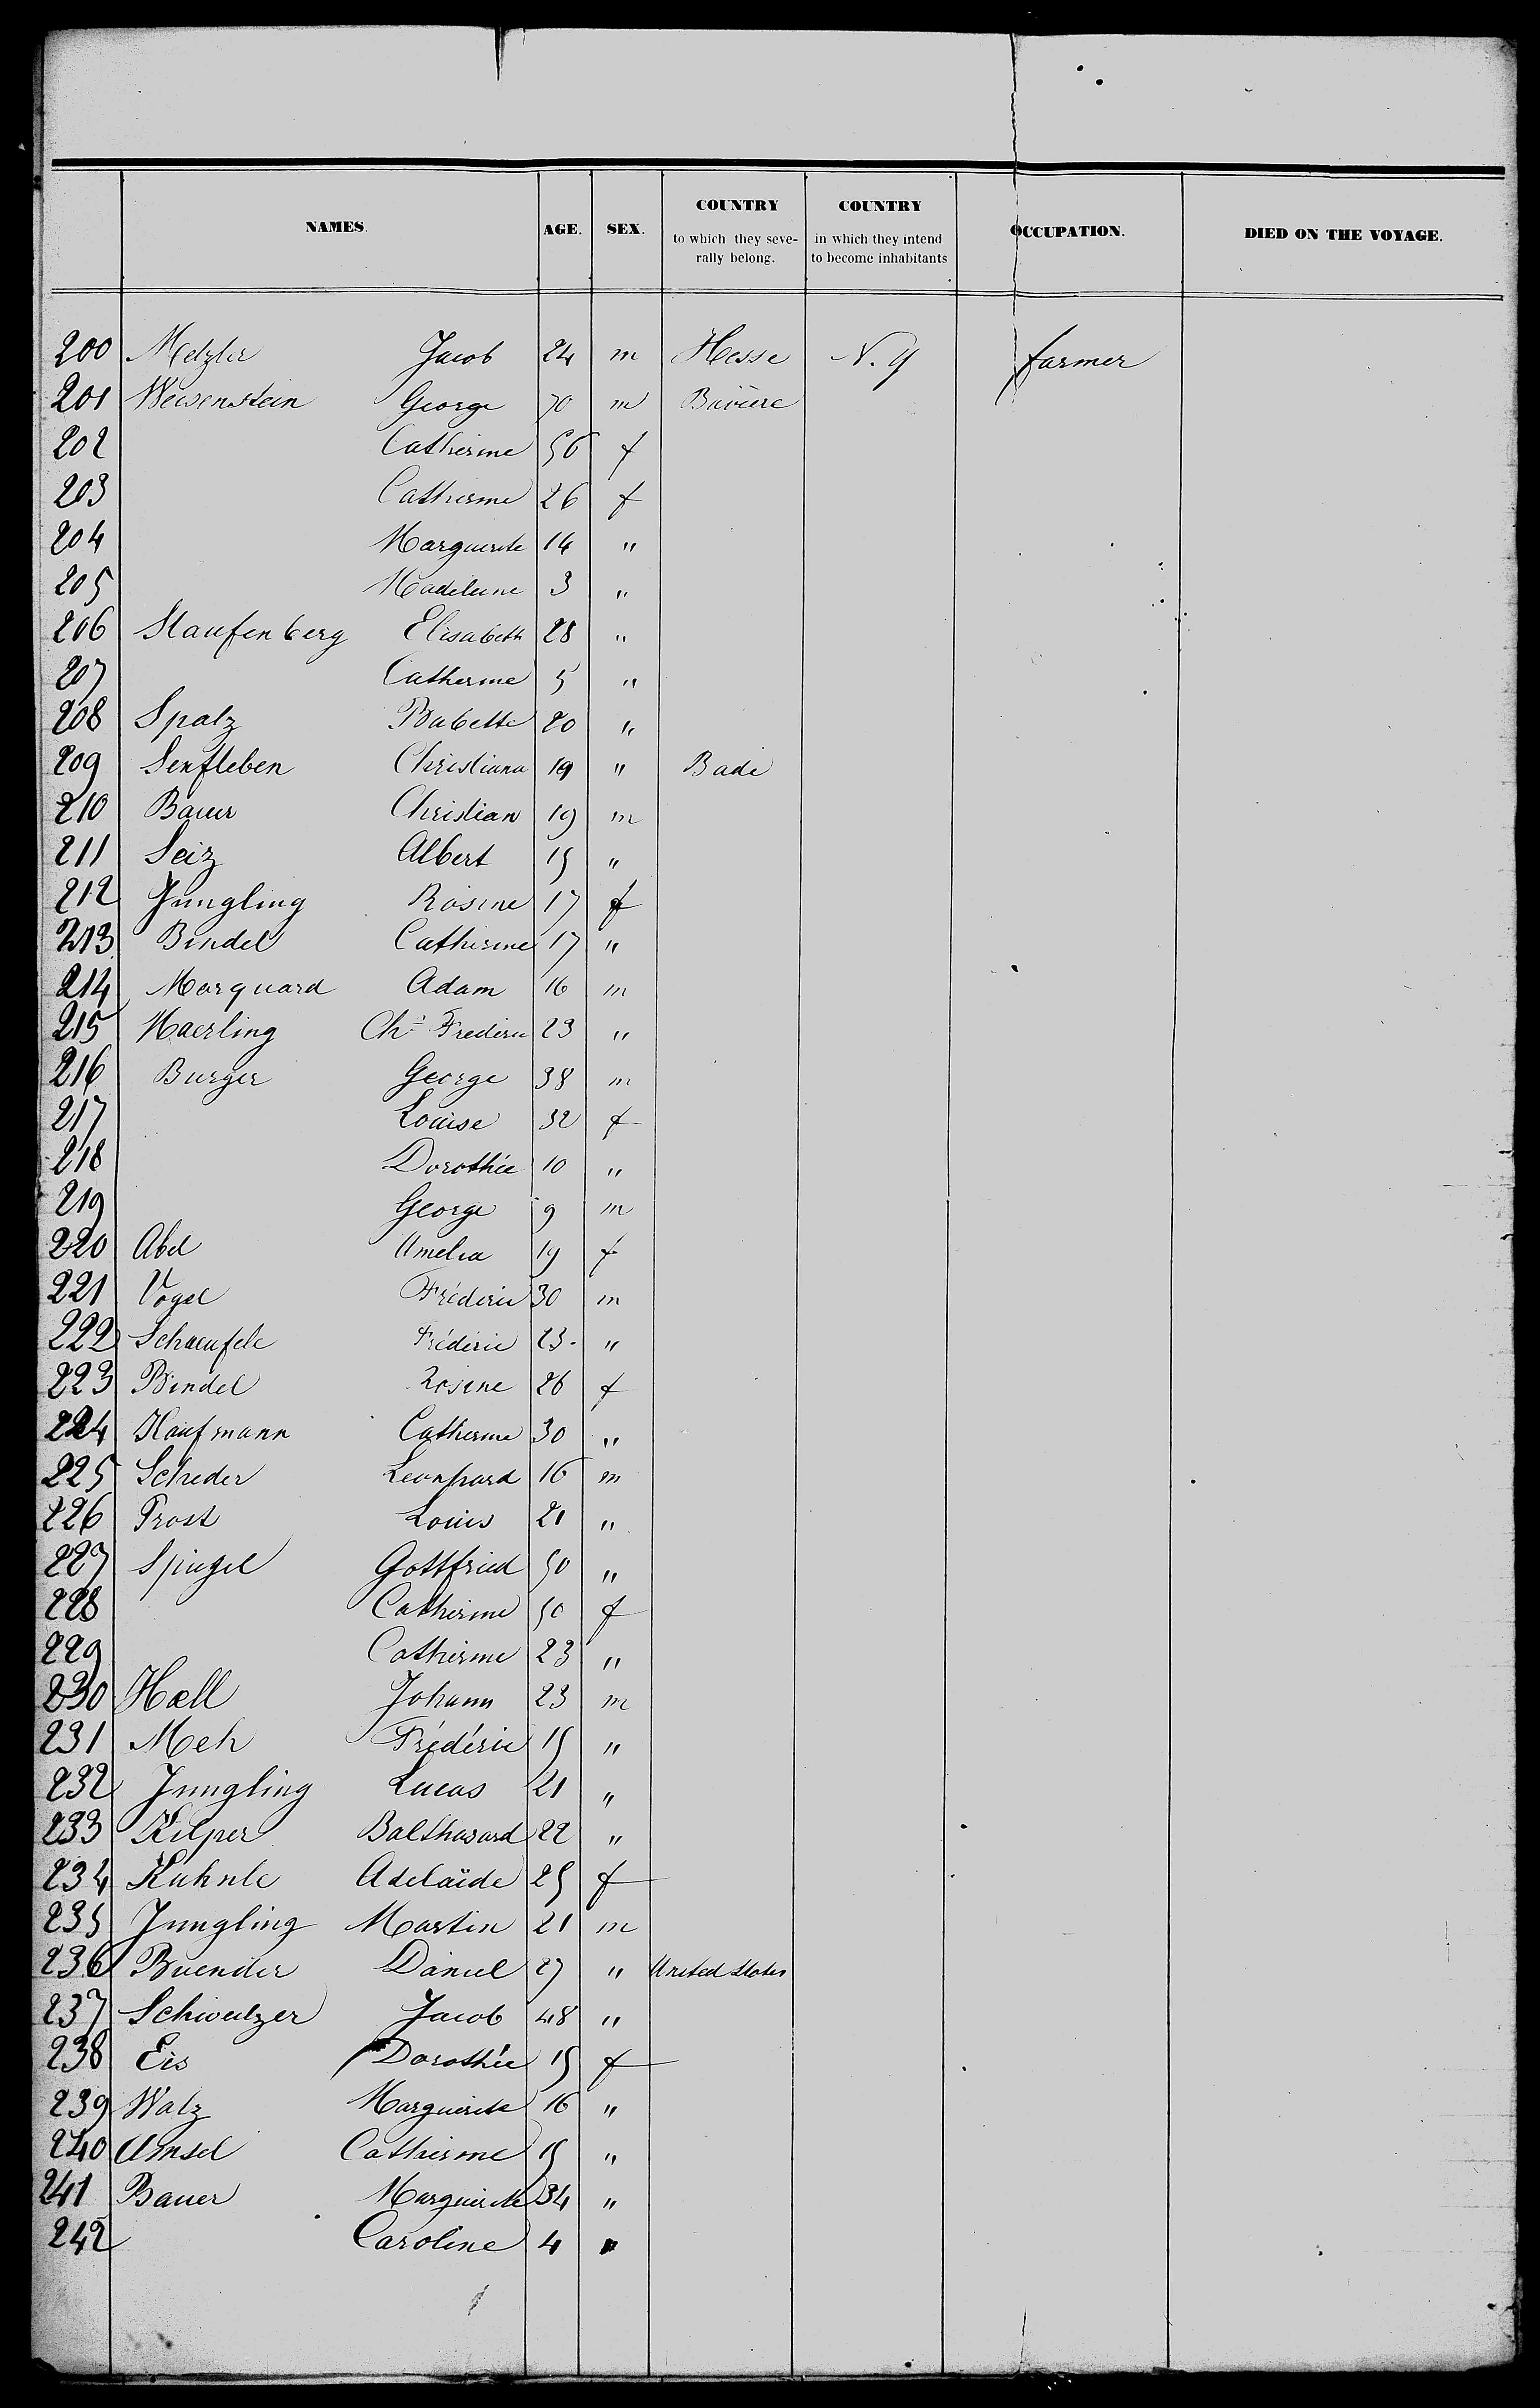 NAMES. AGE. SEX. COUNTRY to which they seve- rally belong. COUNTRY in which they intend to become inhabitants OCCUPATION. DIED ON THE VOYAGE.
200 Metzler Jacob 24 m Hesse N. Y farmer
201 Weisenstein George 70 m Bavière
202 Catherine 56 f
203 Catherine 26 f
204 Marguerite 14 "
205 Madeleine 3 "
206 Staufenberg Elisabeth 28 "
207 Catherine 5 "
208 Spatz Babette 20 "
209 Senftleben Christiana 19 " Bade
210 Bauer Christian 19 m
211 Seiz Albert 15 "
212 Jungling Rosine 17 f
213 Bindel Catherine 17 "
214 Marquard Adam 16 m
215 Haerling Chn Frederic 23 "
216 Burger George 38 m
217 Louise 32 f
218 Dorothée 10 "
219 George 9 m
220 Abel Amelia 19 f
221 Vogel Fréderic 30 m
222 Schaeufele Fréderic 23. "
223 Bindel Rosine 26 f
224 Kaufmann Catherine 30 "
225 Scheder Leonhard 16 m
226 Prost Louis 21 "
227 Spiegel Gottfried 50 "
228 Catherine 50 f
229 Catherine 23 "
230 Hoell Johann 23 m
231 Meh Fréderic 15 "
232 Jungling Lucas 21 "
233 Kilper Balthasard 22 "
234 Kuhnle Adelaïde 25 f
235 Jungling Martin 21 m
236 Buender Daniel 27 " United States
237 Schweitzer Jacob 48 "
238 Eis Dorothée 15 f
239 Walz Marguerite 16 "
240 Amsel Catherine 15 "
241 Bauer Marguerite 34 "
242 Caroline 4 "